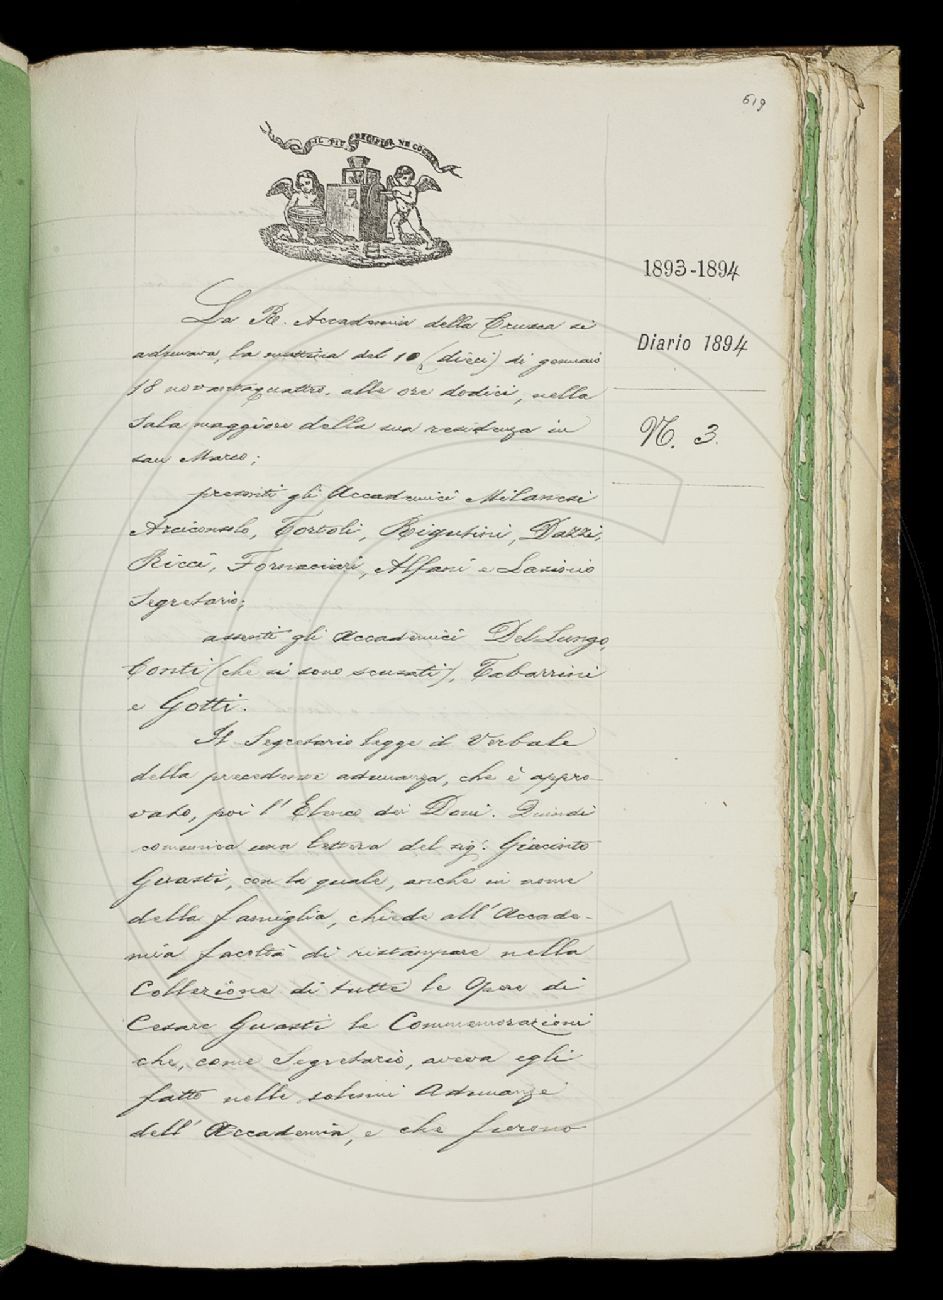 619
IL PIÙ BEL FIOR NE COGLIE
1893-1894
Diario 1894
N. 3.
La R. Accademia della Crusca si
adunava, la mattina del 10 (dieci) di gennaio
18 novantaquattro, alle ore dodici, nella
Sala maggiore della sua residenza in
san Marco;
presenti gli Accademici Milanesi
Arciconsolo, Tortoli, Rigutini, Dazzi,
Ricci, Fornaciari, Alfani e
Segretario;
assenti gli Accademici Del Lungo,
Conti (che si sono scusati), Tabarrini
e Gotti.
Il Segretario legge il Verbale
della precedente adunanza, che è appro-
vato, poi l'Elenco dei Doni. Quindi
comunica una lettera del sig.r Giacinto
Guasti, con la quale, anche in nome
della famiglia, chiede all'Accade-
mia facoltà di ristampare nella
Collezione di tutte le Opere di
Cesare Guasti le Commemorazioni
che, come Segretario, aveva egli
fatto nelle solenni Adunanze
dell'Accademia, e che furono